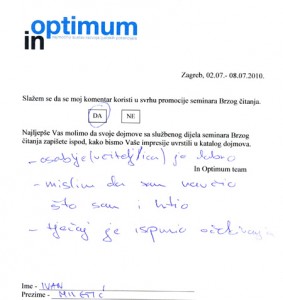 optimum
in
Zagreb, 02.07.- 08.07.2010.
Slažem se da se moj komentar koristi u svrhu promocije seminara Brzog čitanja.
DA NE
Najljepše Vas molimo da svoje dojmove sa službenog dijela seminara Brzog
čitanja zapišete ispod, kako bismo Vaše impresije uvrstili u katalog dojmova.
- osoblje (učiteljica) je dobro
In Optimum team
- mislim da sam naučio
što sam i htio
- tječaj je ispunio očekivanja
Ime - IVAN
Prezime - MILETIĆ